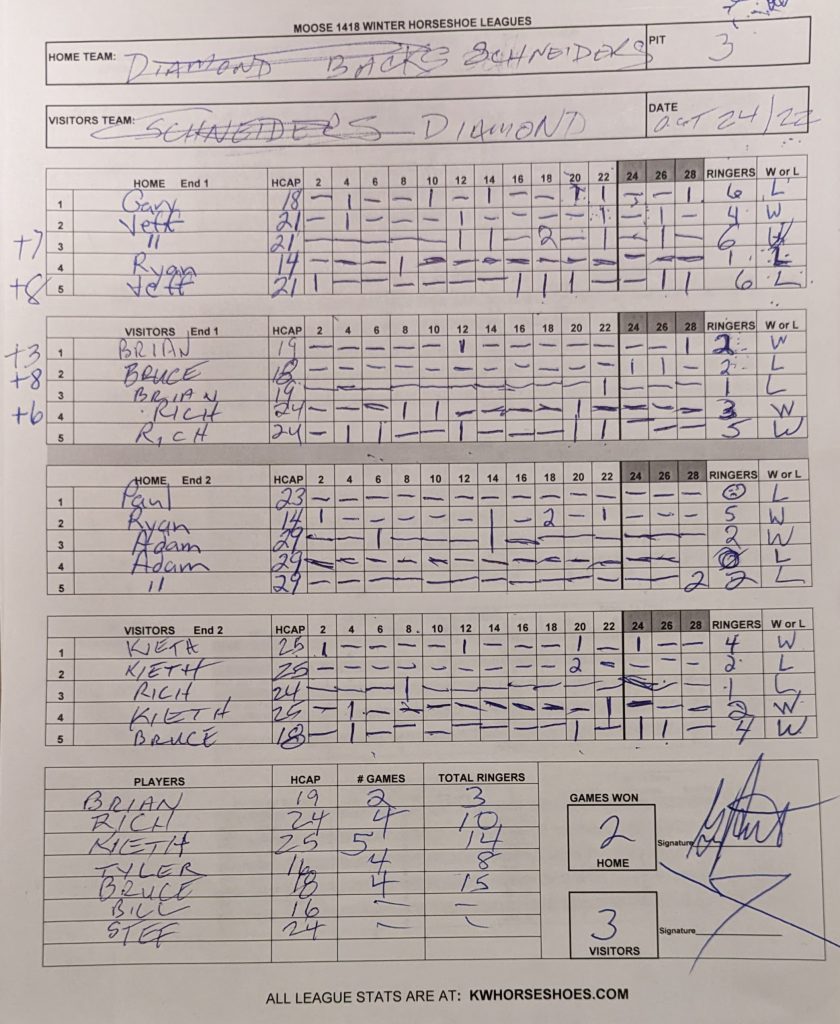 MOOSE 1418 WINTER HORSESHOE LEAGUES
HOME TEAM: DIAMOND BACKS SCHNEIDERS PIT 3
VISITORS TEAM: SCHNEIDERS DIAMOND DATE OCT 24/22
HOME End 1 HCAP 2 4 6 8 10 12 14 16 18 20 22 24 26 28 RINGERS W or L
1 Gary 18 – 1 – – 1 – 1 – – 1 1 – – 1 6 L
2 Jeff 21 – 1 – – – 1 – – – – 1 – 1 – 4 W
+7 3 " 21 – – – – – 1 1 – 2 – 1 – 1 – 6 W
4 Ryan 14 – – – 1 – – – – – – – – – – 1 L
+8 5 Jeff 21 1 – – – – – – 1 1 1 – – 1 1 6 L
VISITORS End 1 HCAP 2 4 6 8 10 12 14 16 18 20 22 24 26 28 RINGERS W or L
+3 1 BRIAN 19 – – – – – 1 – – – – – – – 1 2 W
+8 2 BRUCE 18 – – – – – – – – – – – 1 1 – 2 L
3 BRIAN 19 – – – – – – – – – – 1 – – – 1 L
+6 4 RICH 24 – – – 1 1 – – – – 1 – – – – 3 W
5 RICH 24 – 1 1 – – 1 – – – 1 1 – – – 5 W
HOME End 2 HCAP 2 4 6 8 10 12 14 16 18 20 22 24 26 28 RINGERS W or L
1 Paul 23 – – – – – – – – – – – – – – 0 L
2 Ryan 14 1 – – – – – 1 – 2 – 1 – – – 5 W
3 Adam 29 – – 1 – – – 1 – – – – – – – 2 W
4 Adam 29 – – – – – – – – – – – – – – 0 L
5 " 29 – – – – – – – – – – – – – 2 2 L
VISITORS End 2 HCAP 2 4 6 8 10 12 14 16 18 20 22 24 26 28 RINGERS W or L
1 KIETH 25 1 – – – – 1 – – – 1 – 1 – – 4 W
2 KIETH 25 – – – – – – – – – 2 – – – – 2 L
3 RICH 24 – – – 1 – – – – – – – – – – 1 L
4 KIETH 25 – 1 – – – – – – – – 1 – – – 2 W
5 BRUCE 18 – 1 – – – – – – – 1 – 1 1 – 4 W
PLAYERS HCAP # GAMES TOTAL RINGERS
BRIAN 19 2 3
RICH 24 4 10
KIETH 25 5 14
TYLER 16 4 8
BRUCE 18 4 15
BILL 16 – –
STEF 24 – –
GAMES WON
2
HOME
Signature
3
VISITORS
Signature
ALL LEAGUE STATS ARE AT: KWHORSESHOES.COM